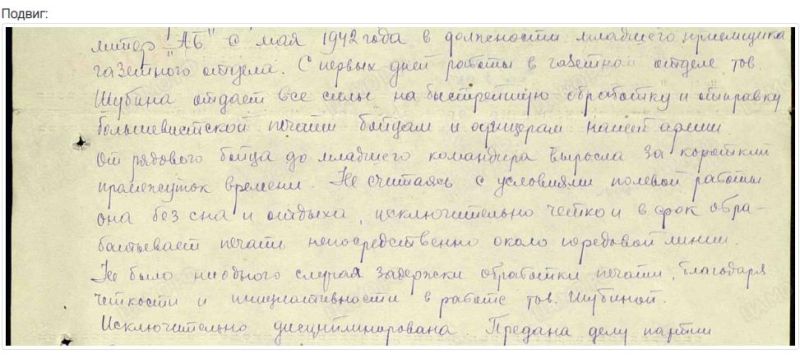 Подвиг:
литер "АБ" с мая 1942 года в должности младшего приемщика
газетного отдела. С первых дней работы в газетном отделе тов.
Шубина отдает все силы на быстрейшую обработку и отправку
большевистской печати бойцам и офицерам нашей армии.
От рядового бойца до младшего командира выросла за короткий
промежуток времени. Не считаясь с условиями полевой работы
она без сна и отдыха, исключительно четко и в срок обра-
батывает печать непосредственно около передовой линии.
Не было ни одного случая задержки обработки печати, благодаря
четкости и инициативности в работе тов. Шубиной.
Исключительно дисциплинирована. Предана делу партии